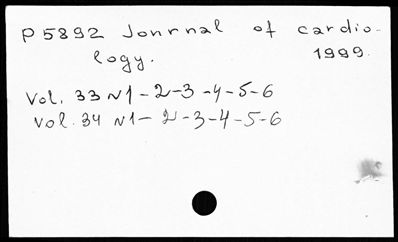 P5892 Jonrnal of cardio-
logy. 1999.
Vol. 33 N1-2-3-4-5-6
Vol. 34 N1-2-3-4-5-6